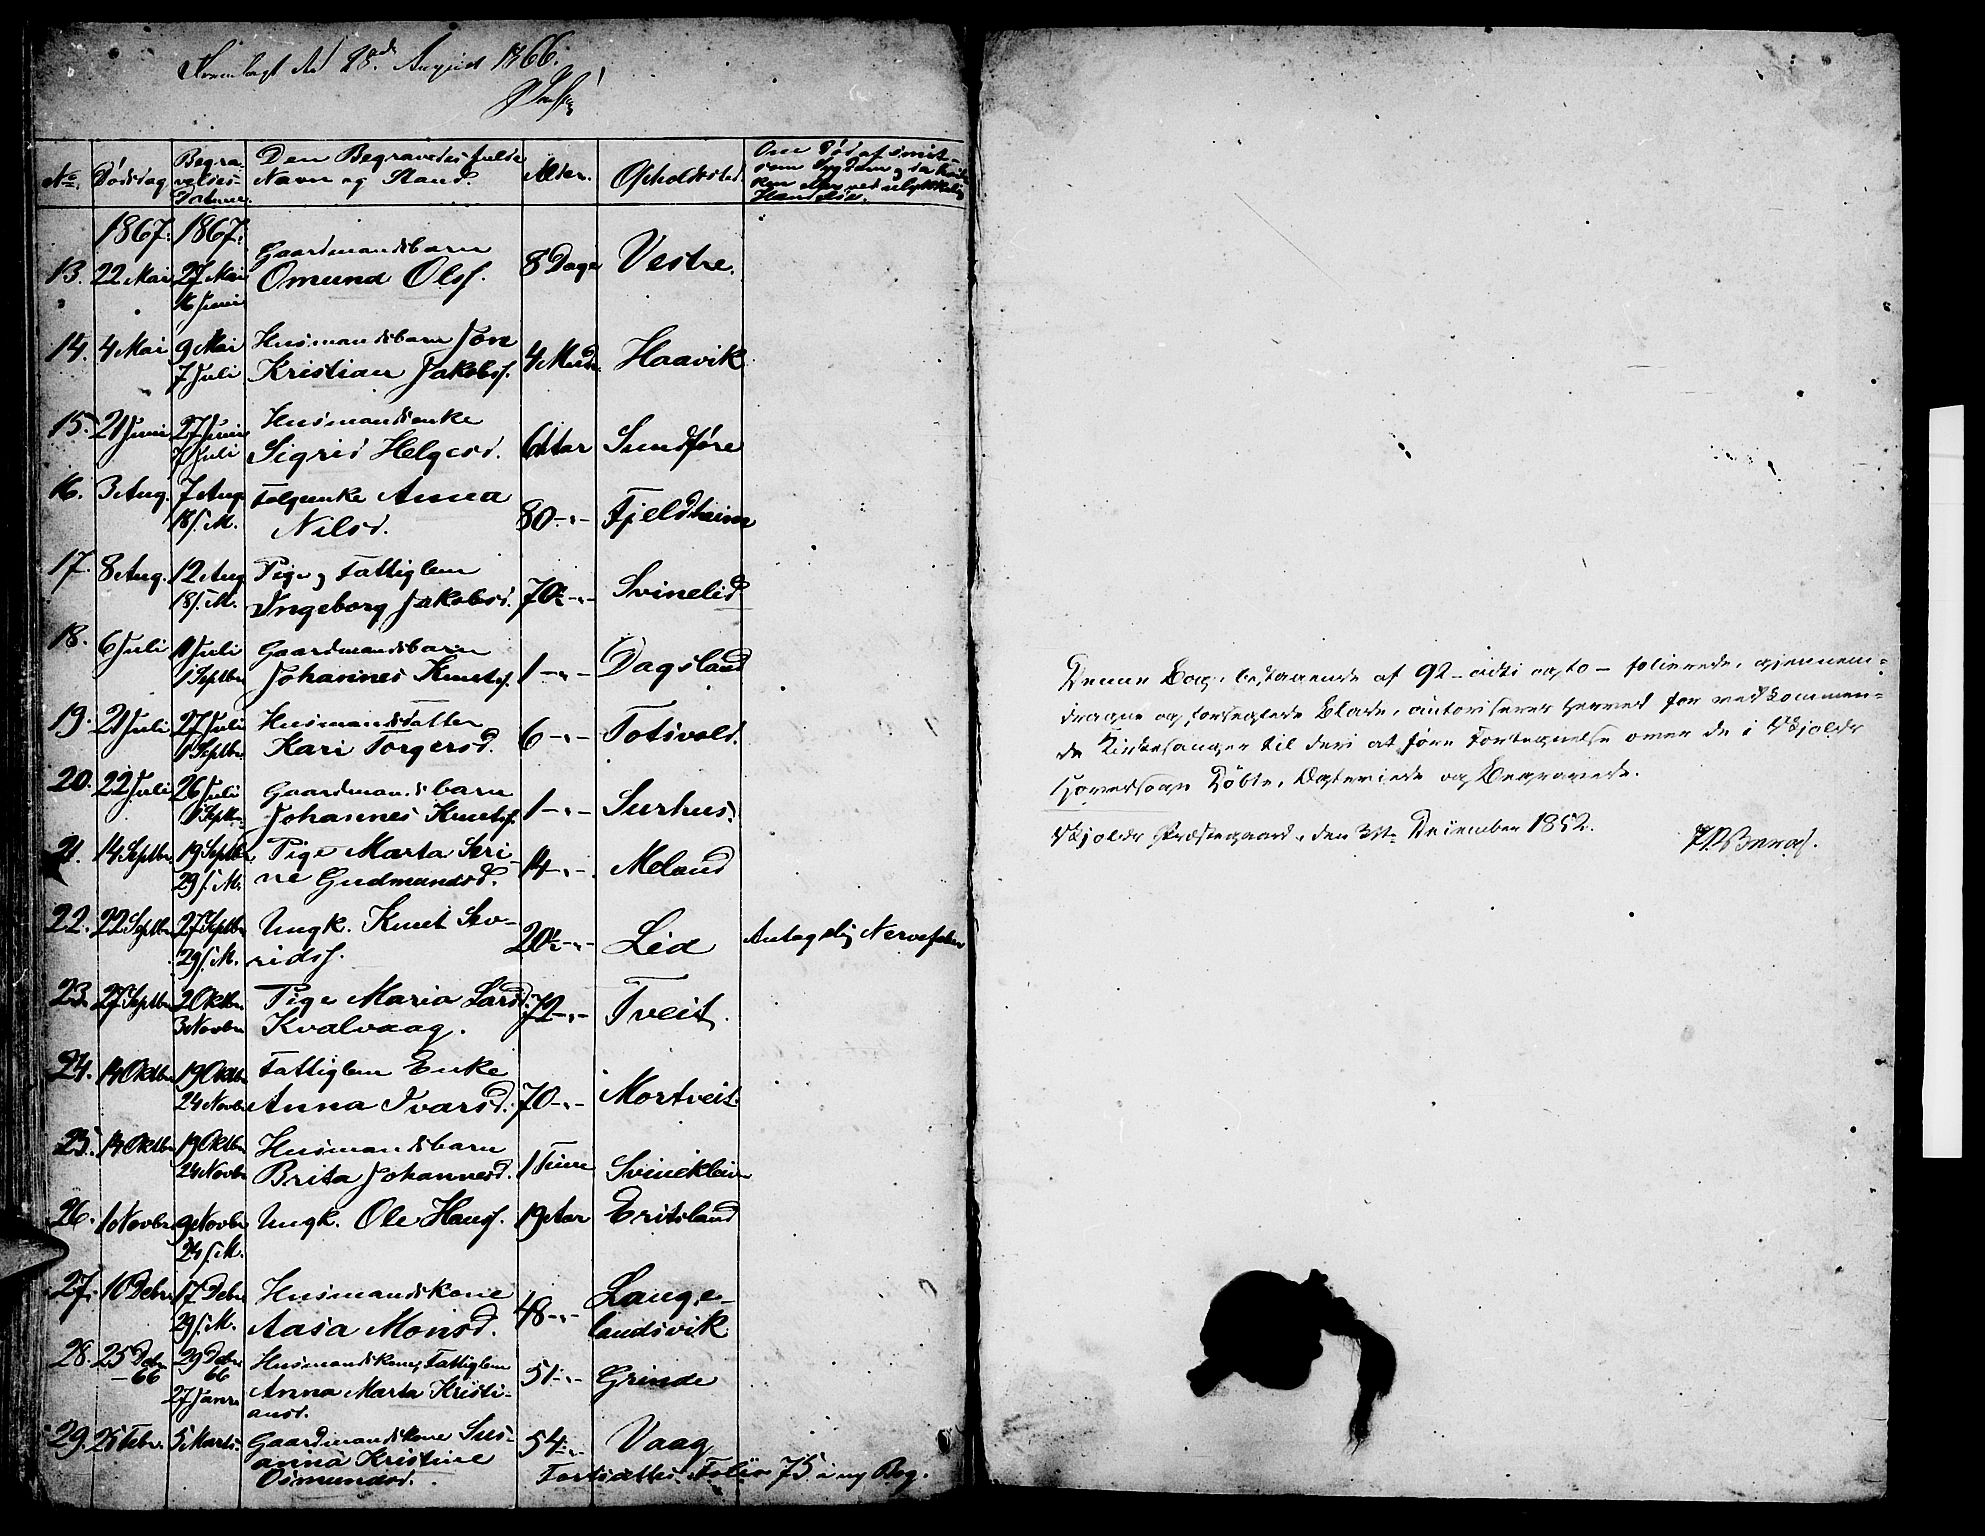 Fremlagt den 28de August 1866.
No. Dødsdag Begravelses-Datum. Den Begravedes fulde Navn og Stand. Alder. Opholdssted. Om Død af smitsom Sygdom og da hvilken eller ved ulykkelig Hændelse.
1867. 1867.
13. 22 Mai 27 Mai Gaardmandsbarn 8 Dage Vestre.
16 Juni Omund Olsf.
14. 4 Mai 9 Mai Husmandsbarn Jon 4 Mndr. Haavik
7 Juli Kristian Jakobsf.
15. 21 Juni 27 Juni Husmandsenke 61 Aar Sundføre
7 Juli Sigrid Helgesd.
16. 3 Aug. 7 Aug. Folgeenke Anna 80-"- Fjeldheim
18 s. M. Nilsd.
17. 8 Aug. 12 Aug. Pige og Fattiglem 70-"- Svinelid
18 s. M. Ingeborg Jakobsd.
18. 6 Juli 11 Juli Gaardmandsbarn 1-"- Dagsland
1 Septbr Johannes Knutsf.
19. 21 Juli 27 Juli Husmandsdatter 6-"- Totsvold.
1 Septbr Kari Torgersd.
20. 22 Juli 26 Juli Gaardmandsbarn 1-"- Surhus.
1 Septbr Johannes Knutsf.
21. 14 Septbr. 19 Septbr. Pige Marta Seri- 14-"- Meland
29 s. M. ne Gudmundsd.
22. 22 Septbr 27 Septbr Ungk. Knut Sev- 20-"- Lid Antagelig Nervefeber
29 s. M. ridsf.
23. 27 Septbr 2 Oktbr Pige Maria Larsd. 72-"- Tveit.
3 Novbr Kvalvaag.
24. 14 Oktbr 19 Oktbr Fattiglem Enke 70-"- Mortveit.
24 Novbr Anna Ivarsd.
25. 14 Oktbr 19 Oktbr Husmandsbarn 1 Time Svineklein
24 Novbr Brita Johannesd.
26. 1 Novbr 9 Novbr Ungk. Ole Hansf. 19 Aar Eritsland
24 s. M.
27. 10 Debr 17 Debr Husmandskone 48-"- Lange-
29 s. M. Aasa Monsd. landsvik
28. 25 Debr 29 Debr Husmandskone, Fattiglem 51-"- Grinde
-66 66 Anna Marta Kristi-
27 Janr ansd.
29. 25 Febr. 5 Marts Gaardmandskone Sus- 54-"- Vaag
anna Kristine
Osmundsd.
Fortsættes Folio 75 i ny Bog.
Denne Bog, bestaaende af 92 - nitti og to - folierede, gjennem-
dragne og forseglede Blade, autoriseres herved for vedkommen-
de Kirkesanger til deri at føre Fortegnelse over de i Skjolds
Hovedsogn Døbte, Egteviede og Begravede.
Skjolds Præstegaard, den 31te December 1852.